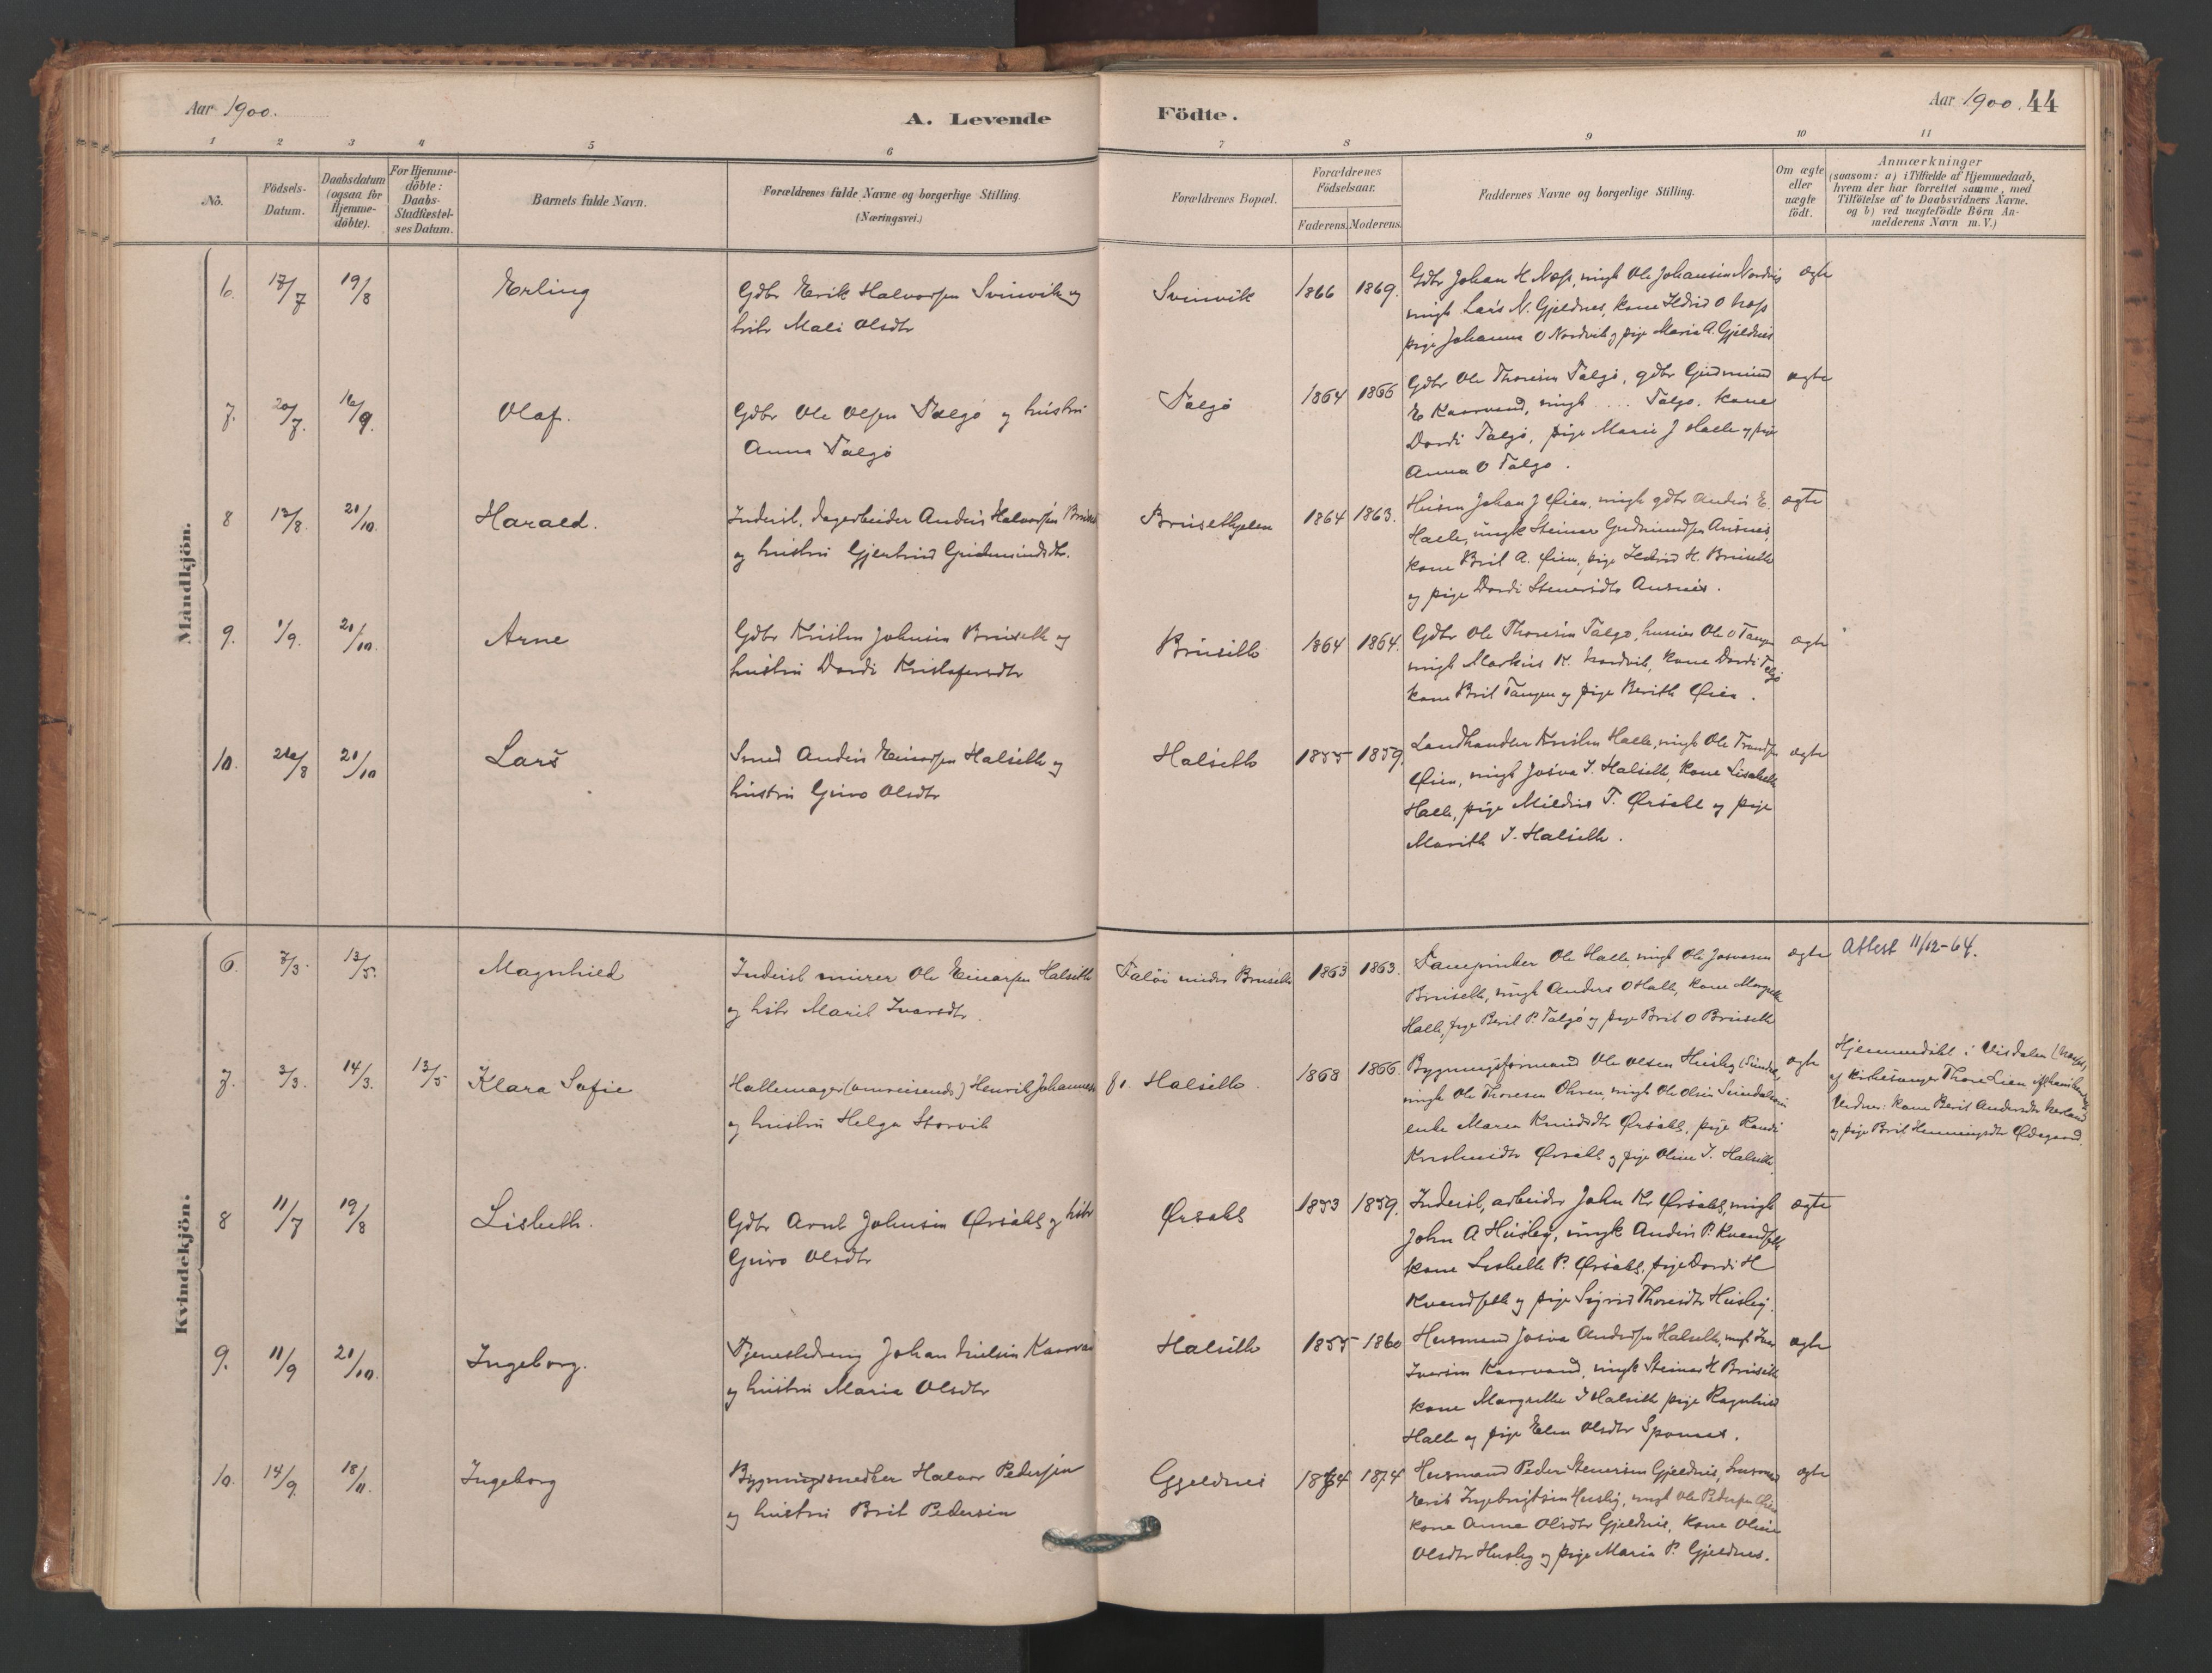 Aar 1900.
A. Levende Födte.
Aar 1900. 44
1 2 3 4 5 6 7 8 9 10 11
No.
Födsels-
Datum.
Daabsdatum
(ogsaa for
Hjemme-
döbte).
For Hjemme-
döbte:
Daabs-
Stadfæstel-
ses Datum.
Barnets fulde Navn.
Forældrenes fulde Navne og borgerlige Stilling.
(Næringsvei.)
Forældrenes Bopæl.
Forældrenes
Födselsaar.
Faderens. Moderens.
Faddernes Navne og borgerlige Stilling.
Om ægte
eller
uægte
födt.
Anmærkninger
(saasom: a) i Tilfælde af Hjemmedaab,
hvem der har forrettet samme, med
Tilföielse af to Daabsvidners Navne.
og b) ved uægtefödte Börn An-
melderens Navn m.V.)
Mandkjön.
6. 17/7 19/8 Erling
Gdbr Erik Halvorsen Svinvik og
hstr Mali Olsdtr
Svinvik 1866 1869.
Gdbr Johan H Næss, ungk Ole Johansen Nordvik
ungk Lars N. Gjeldnes, kone Ildrid O Næss
pige Johanna O Nordvik og pige Maria A. Gjeldnes
ægte
7. 20/7. 16/9. Olaf.
Gdbr Ole Olsen Talgö og hustru
Anna Talgö
Talgö 1864 1866
Gdbr Ole Thoresen Talgö, gdbr Gudmund
E Kaarvand, ungk .... Talgö, kone
Dordi Talgö, pige Marie J Halle og pige
Anna O Talgö.
ægte
8 12/8. 21/10. Harald.
Inderst, dagarbeider Anders Halvorsen
og hustru Gjertrud Gudmundsdtr.
Brusethjelen 1864 1863.
Husm Johan J Øien, ungk gdbr Anders E.
Halle, ungk Steinar Gudmundsen Ausnes,
kone Brit A. Øien, pige Ildrid H. Bruseth
og pige Dordi Stenersdtr Ausnes.
ægte
9. 1/9. 21/10. Arne
Gdbr Kristen Johnsen Bruseth og
hustru Dordi Kristofersdtr
Bruseth 1864 1864.
Gdbr Ole Thoresen Talgö, husm Ole O Tangen
ungk Markus K. Nordvik, kone Dordi Talgö
kone Brit Tangen og pige Berith Øien.
ægte
10. 26/8 21/10 Lars
Smed Anders Einarsen Halseth og
hustru Guro Olsdtr
Halseth 1855 1859.
Landhandler Kristen Halle, ungk Ole Trondsen
Øien, ungk Josva I. Halseth, kone Lisabeth
Halle, pige Mildrid T. Ørsahl og pige
Marith I. Halseth.
ægte
Kvindekjön.
6. 7/3. 13/5. Magnhild
Inderst murer Ole Einarsen Halseth
og hstr Marit Ivarsdtr.
Taløi under Bruseth 1863 1863.
Ole Halle, ungk Ole Josvasen
Bruseth, ungk Anders O Halle, kone Margreth
Halle, pige Berit P. Talgö og pige Brit O Bruseth
ægte
Attest 11/12-64.
7. 2/3. 14/3. 13/5 Klara Sofie
Hattemager (omreisende) Henrik Johannes
og hustru Helga Storvik
f.t. Halseth 1868 1866.
Bygningsformand Ole Olsen Husby
ungk Ole Thoresen Ohren, ungk Ole Olsen
enke Maren Knudsdtr Ørsahl, pige Randi
Ørsahl og pige Oline I. Halseth.
ægte
Hjemmedöbt i Visdalen
af Kirkesanger Thore Lien
Vidner: kone Berit Andersdtr
og pige Brit Henningsdtr Ødegaard.
8 11/7 19/8 Lisbeth.
Gdbr Arnt Johnsen Ørsahl og hstr
Guro Olsdtr
Ørsahl 1853 1859.
Inderst, arbeider John Kr Ørsahl, ungk
John A Husby, ungk Anders P. Kvendseth
kone Lisbeth P. Ørsahl, pige Dordi H
Kvendseth og pige Sigrid Thoresdtr Husby.
ægte
9. 11/9 21/10. Ingeborg.
Tjenestedreng Johan Nielsen
og hustru Maria Olsdtr
Halseth 1855 1860
Husmand Josva Andersen Halseth, ungk Ivar
Iversen Kaarvand, ungk Steinar H Bruseth
kone Margrethe I Halseth pige Ragnhild
Halle og pige Elen Olsdtr
ægte
10. 14/9. 18/11. Ingeborg
Bygningssnedker Halvor Pedersen
og hustru Brit Pedersen
Gjeldnes 1864 1874
Husmand Peder Stenersen Gjeldnes, husmand
Erik Ingebrigtsen Husby, ungk Ole Pedersen
kone Anna Olsdtr Gjeldnes, kone Oline
Olsdtr Husby og pige Maria P. Gjeldnes.
ægte